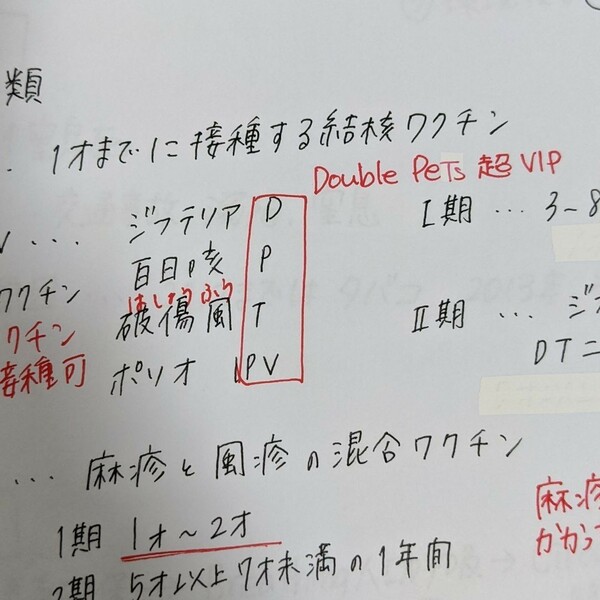 類
・ 1才までに接種する結核ワクチン
Double PeTs 超VIP
… ジフテリア D
百日咳 P
はしょうふう
破傷風 T
ポリオ IPV
ワクチン
クチン
接種可
I期 … 3-8
II期 … ジ
DT二
… 麻疹と風疹の混合ワクチン
1期 1才〜2才
2期 5才以上7才未満の1年間
麻疹
かかっ